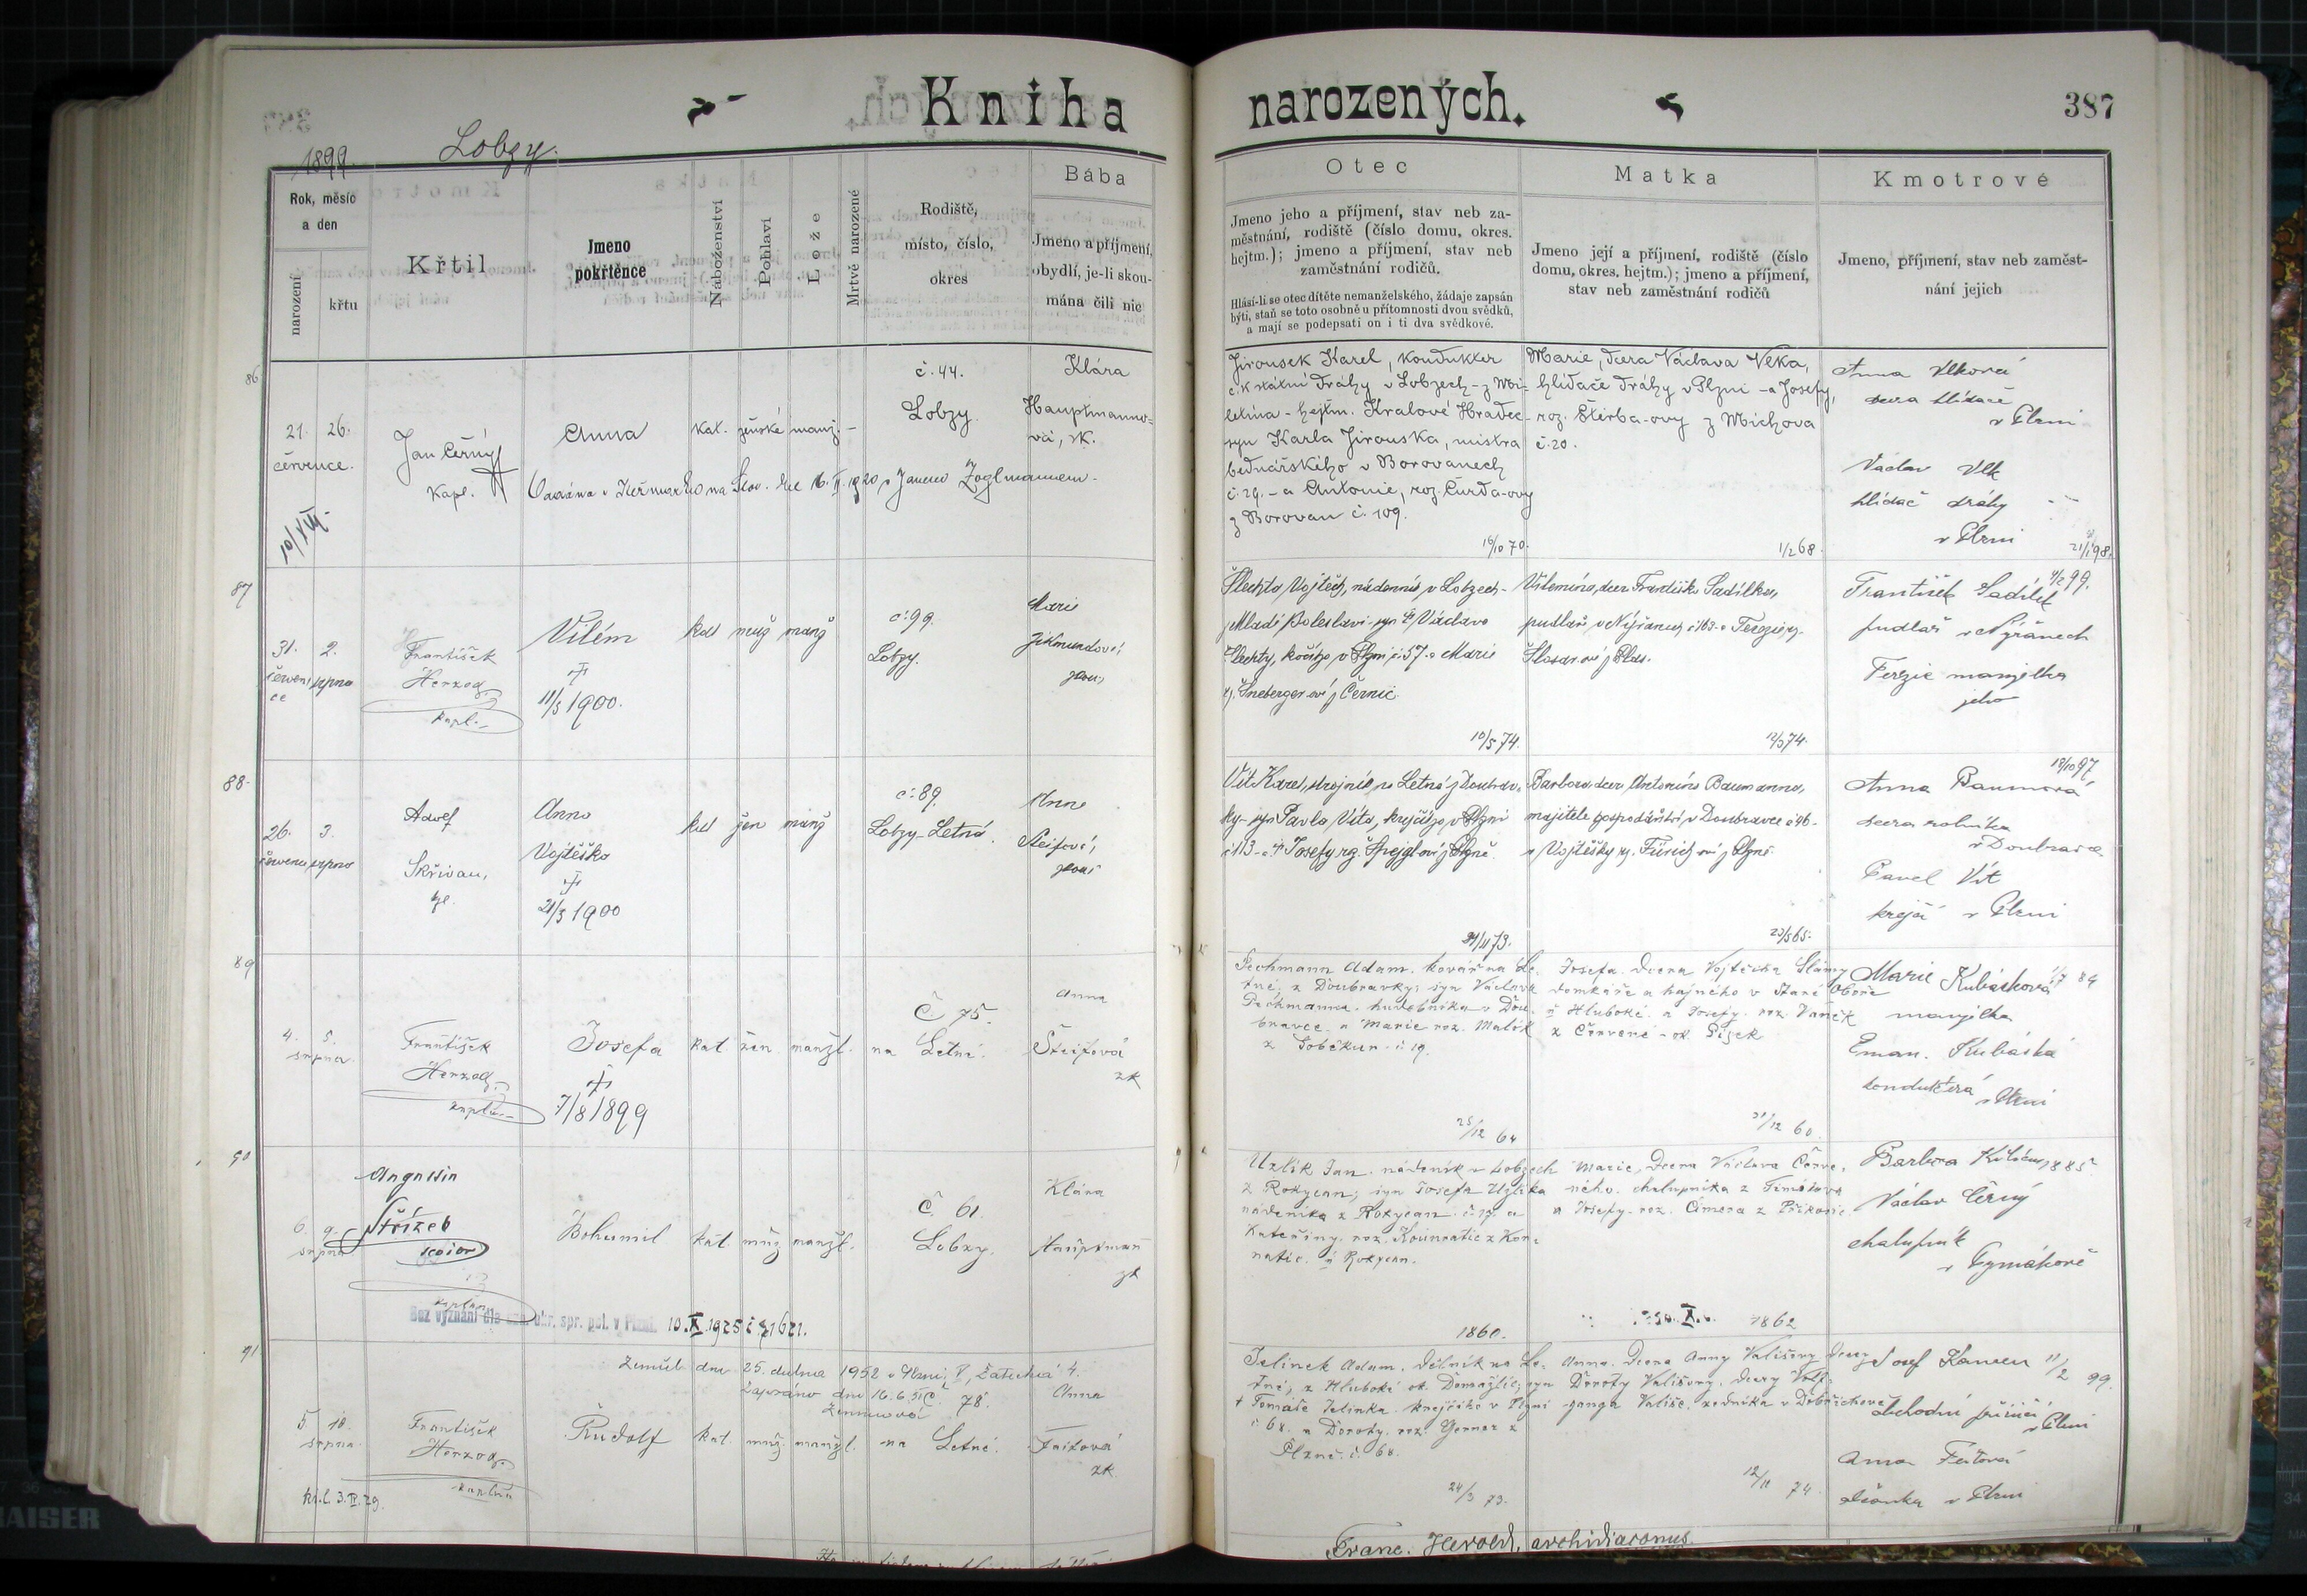 Kniha narozených.
387
1899.
Lobzy.
Rok, měsíc
a den
narození
křtu
Křtil
Jmeno
pokřtěnce
Náboženství
Pohlaví
Lože
Mrtvě narozené
Rodiště,
místo, číslo,
okres
Bába
Jmeno a příjmení,
obydlí, je-li skou-
mána čili nic
Otec
Jmeno jeho a příjmení, stav neb za-
městnání, rodiště (číslo domu, okres.
hejtm.); jmeno a příjmení, stav neb
zaměstnání rodičů.
Hlásí-li se otec dítěte nemanželského, žádaje zapsán
býti, staň se toto osobně u přítomnosti dvou svědků,
a mají se podepsati on i ti dva svědkové.
Matka
Jmeno její a příjmení, rodiště (číslo
domu, okres. hejtm.); jmeno a příjmení,
stav neb zaměstnání rodičů
Kmotrové
Jmeno, příjmení, stav neb zaměst-
nání jejich
86
21. 26.
července.
Jan Černý
kapl.
Anna
kat. ženské manž. –
č. 44.
Lobzy.
Klára
Hauptmanno-
vá, zk.
Jirousek Karel, kondukter
c. k. státní dráhy v Lobzech - z Mi-
letína - hejtm. Králové Hradec -
syn Karla Jirouska, mistra
bednářského v Borovanech
č. 29. - a Antonie, roz. Čurda-ovy
z Borovan č. 109.
16/10 70.
Marie, dcera Václava Vlka,
hlídače dráhy v Plzni - a Josefy,
roz. Štěrba-ovy z Michova
č. 20.
1/2 68.
Anna Vlková
dcera hlídače
v Plzni
Václav Vlk
hlídač dráhy
v Plzni
87
31. 2.
červen- srpna
ce
František
Herzog
kapl.
Vilém
11/3 1900.
kat muž manž
č. 99.
Lobzy.
Marie
Zikmundová
zkouš
Šlechta Vojtěch, nádenník v Lobzech -
z Mladé Boleslavi - syn Václava
Šlechty, kočího v Plzni č. 57. a Marie
rz. Šneberger-ové z Černic.
10/5 74.
Vilemína, dcera Františka Sadílka,
pudlaře v Nýřanech č. 163 a Terezie rz.
Šlosar-ové z Plas.
12/3 74.
4/2 99.
František Sadílek
pudlař v Nýřanech
Terezie manželka
jeho
88.
26. 3.
července srpna
Adolf
Skřivan,
Anna
Vojtěška
21/3 1900
kat žen manž
č. 89.
Lobzy-Letná.
Anna
Steifová,
zkouš
Vít Karel, strojník na Letné z Doubrav-
ky - syn Pavla Víta, krejčího v Plzni
č. 113 - a Josefy rz. Špeygl-ové z Plzně.
Barbora dcera Antonína Baumanna,
majitele gospodářství v Doubravce č. 46 -
a Vojtěšky rz. Fürich-ové z Plzně.
23/5 65.
18/10 97
Anna Baumová
dcera rolníka
v Doubravce
Pavel Vít
krejčí v Plzni
89
4. 5.
srpna.
František
Herzog
kaplan
Josefa
7/8 1899
kat žen. manžl.
Č. 75.
na Letné.
Anna
Šteifová
zk
Pechmann Adam, kovář na Le-
tné, z Doubravky; syn Václava
Pechmanna, hudebníka v Dou-
bravce a Marie roz. Malík
č. 19.
25/12 64
Josefa, dcera Vojtěcha Slámy
domkáře a hajného v Staré Oboře
u Hluboké, a Josefy roz. Vaněk
z Červené - ok. Písek
31/12 60.
Marie Kubásková
manželka
Eman. Kubáska
konduktera
v Plzni
90
6. 9.
srpna
Augustin
Střízek
senior
kaplan
Bohumil
kat. muž manžl.
Č. 61.
Lobzy.
Klára
Hauptman
zk
10. X. 1925 č. 21621.
Uzlík Jan, nádeník v Lobzech
z Rokycan; syn Josefa Uzlíka
nádeníka z Rokycan č. 19. a
Kateřiny, roz. Kounratic z Kor-
natic. u Rokycan.
1860.
Marie, dcera Václava Červe-
ného, chalupníka z Timákova
a Josefy roz. Čmera z Příkosic.
1862
Václav Černý
chalupník
v Tymákově
91
Zemřel dne 25. dubna 1952 v Plzni
5. 10.
srpna
František
Herzog
kaplan
Rudolf
kat. muž. manžl.
Č. 78.
na Letné.
Anna
zk
Jelínek Adam, dělník na Le-
tné; z Hluboké ok. Domažlic; syn
† Tomáše Jelínka, krejčího v Plzni
č. 68. a Doroty, roz. Gerner z
Plzně č. 68.
24/3 73.
Anna, dcera Anny Vališovy dcery
Doroty Vališovy, dcery Volf-
ganga Vališe, zedníka v Dobřichově
12/11 74.
11/2 99.
Josef
obchodní příručí
v Plzni
Anna
v Plzni
Franc. Herold, archidiaconus.